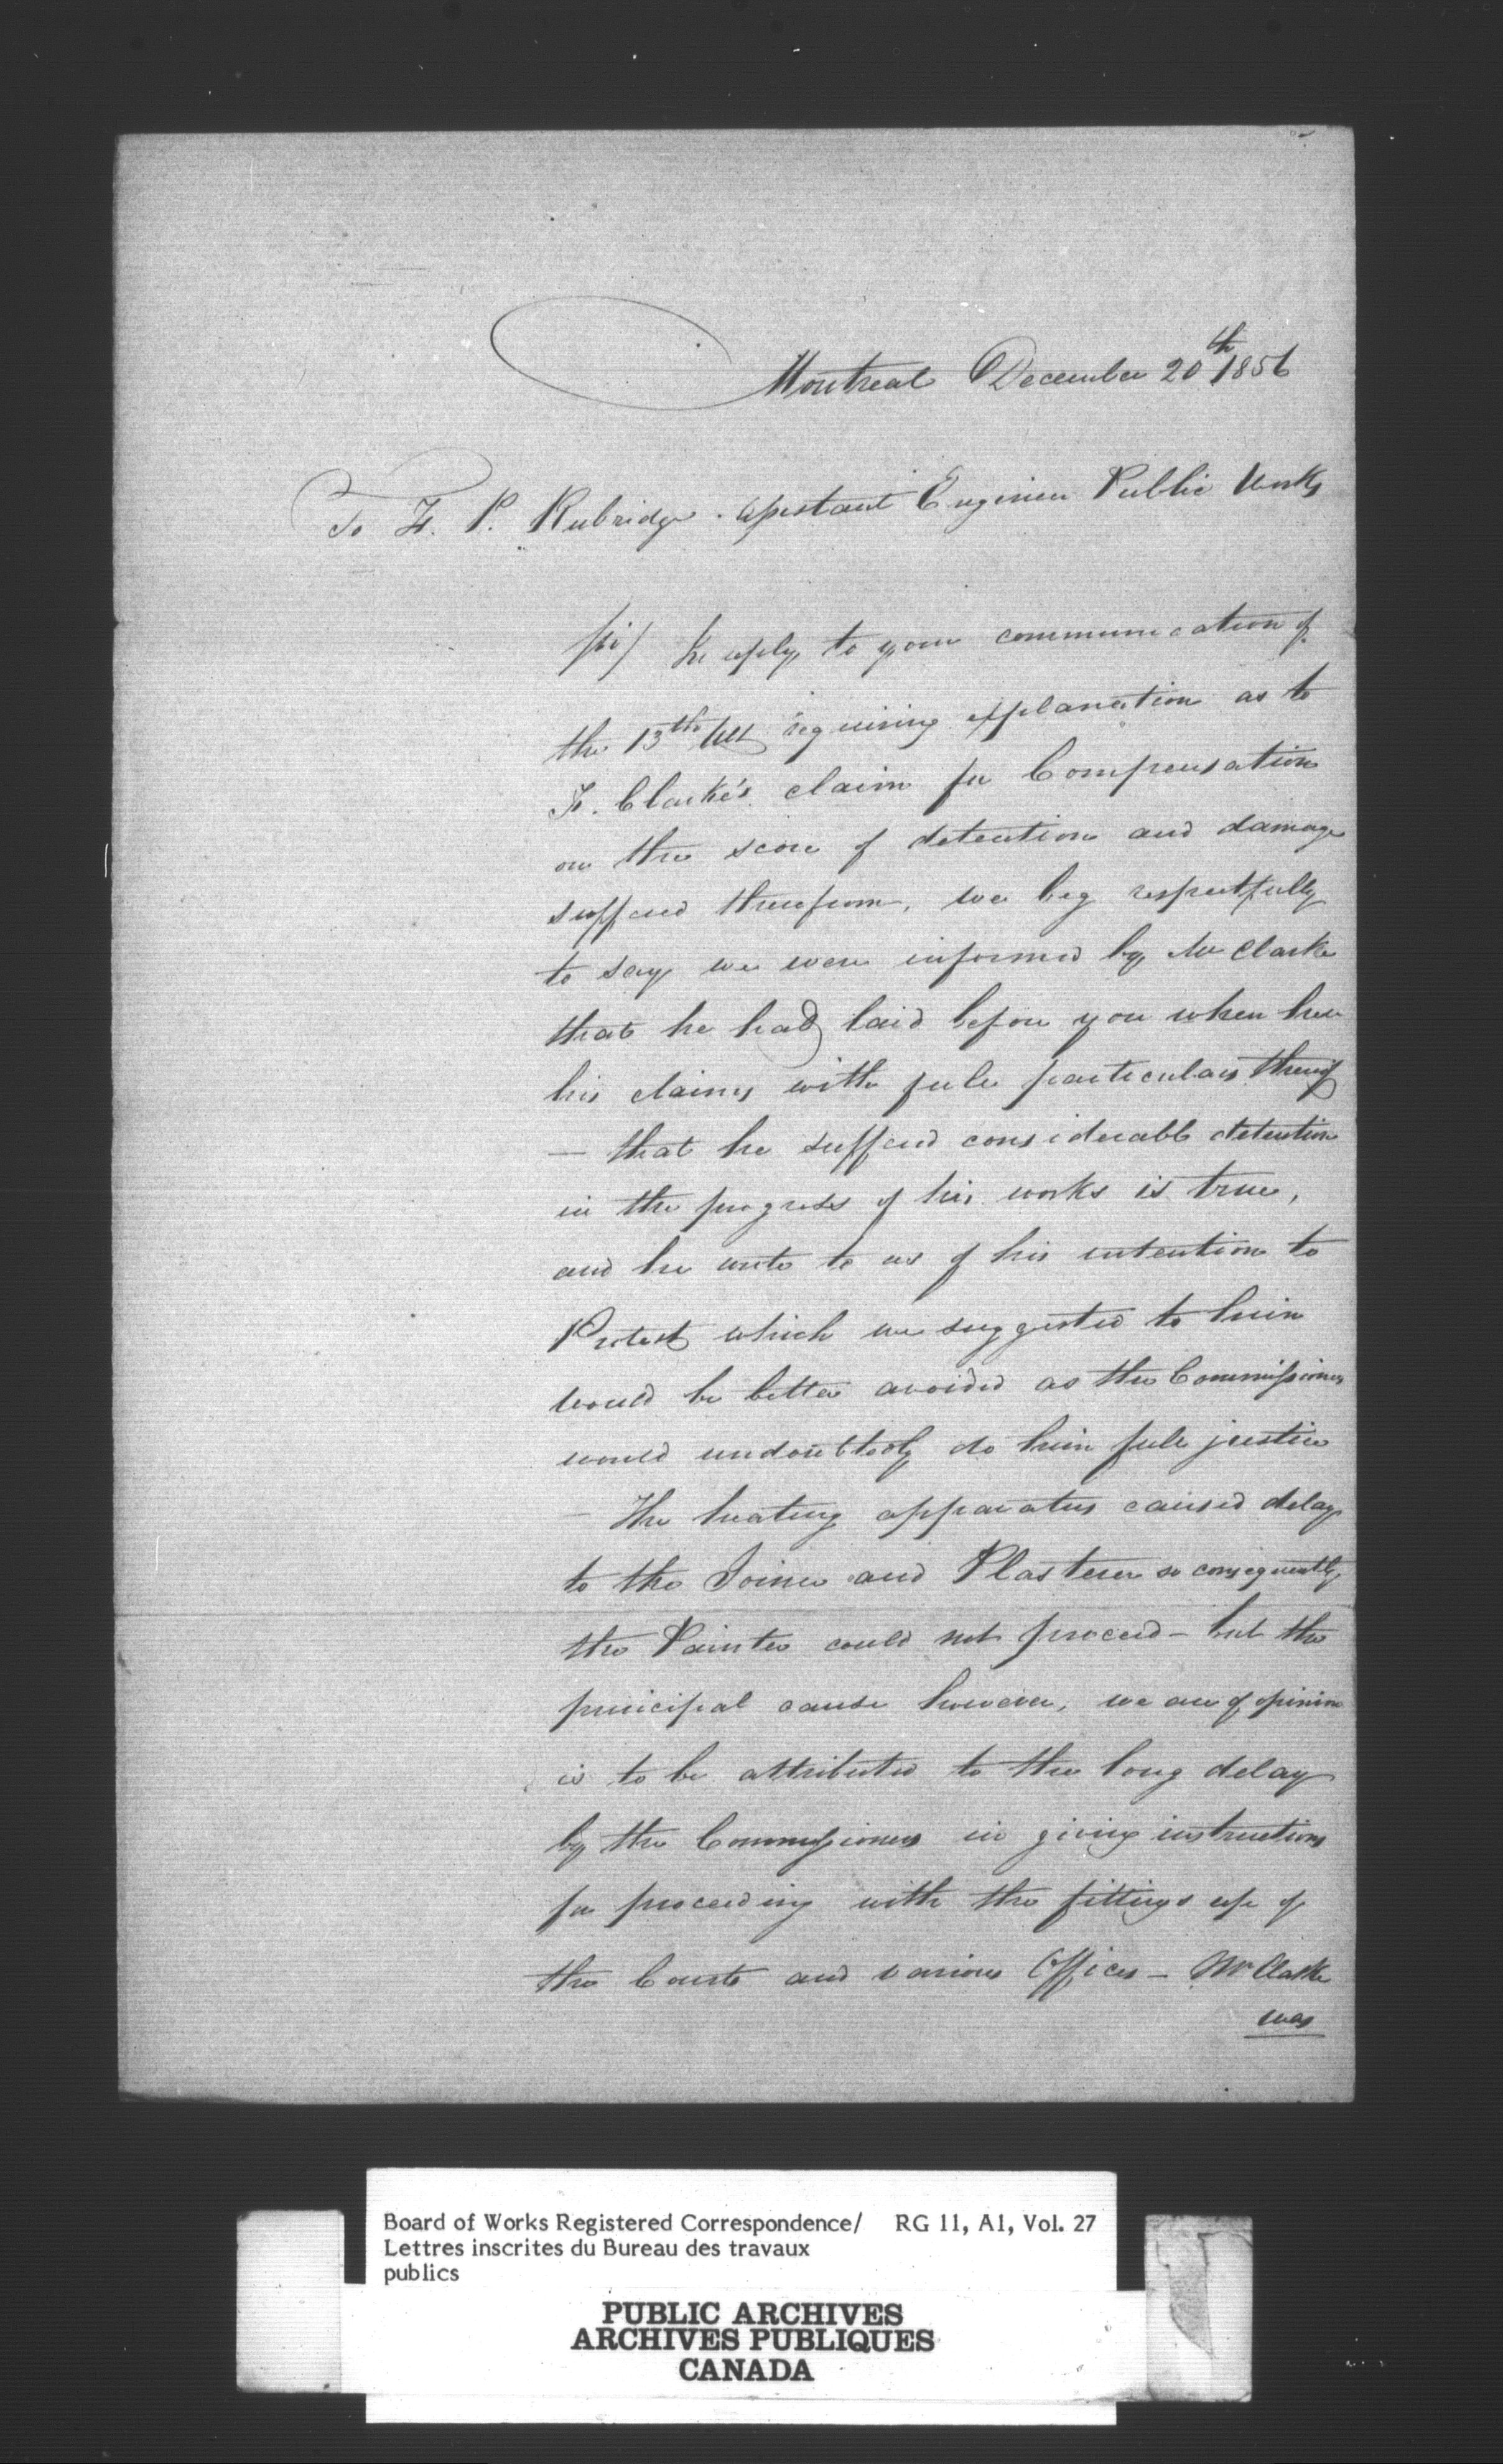 Montreal December 20th 1856
To F. P. Rubridge. Assistant Engineer Public Works
Sir/ In reply, to your communication of
the 13th Ult requiring explanation as to
F. Clarke's claim for Compensation
on the score of detention and damage
suffered therefrom, we beg respectfully
to say we were informed by Mr Clarke
that he had laid before you when here
his claims with full particulars thereof
— that he suffered considerable detention
in the progress of his works is true,
and he wrote to us of his intention to
Protest which we suggested to him
would be better avoided as the Commissioners
would undoubtedly do him full justice
— The heating apparatus caused delay
to the Joiner and Plasterer so consequently
the Painter could not proceed – but the
principal cause however, we are of opinion
is to be attributed to the long delay
by the Commissioners in giving instructions
for proceeding with the fittings up of
the Courts and various Offices – Mr Clarke
was
Board of Works Registered Correspondence/ RG 11, A1, Vol. 27
Lettres inscrites du Bureau des travaux
publics
PUBLIC ARCHIVES
ARCHIVES PUBLIQUES
CANADA